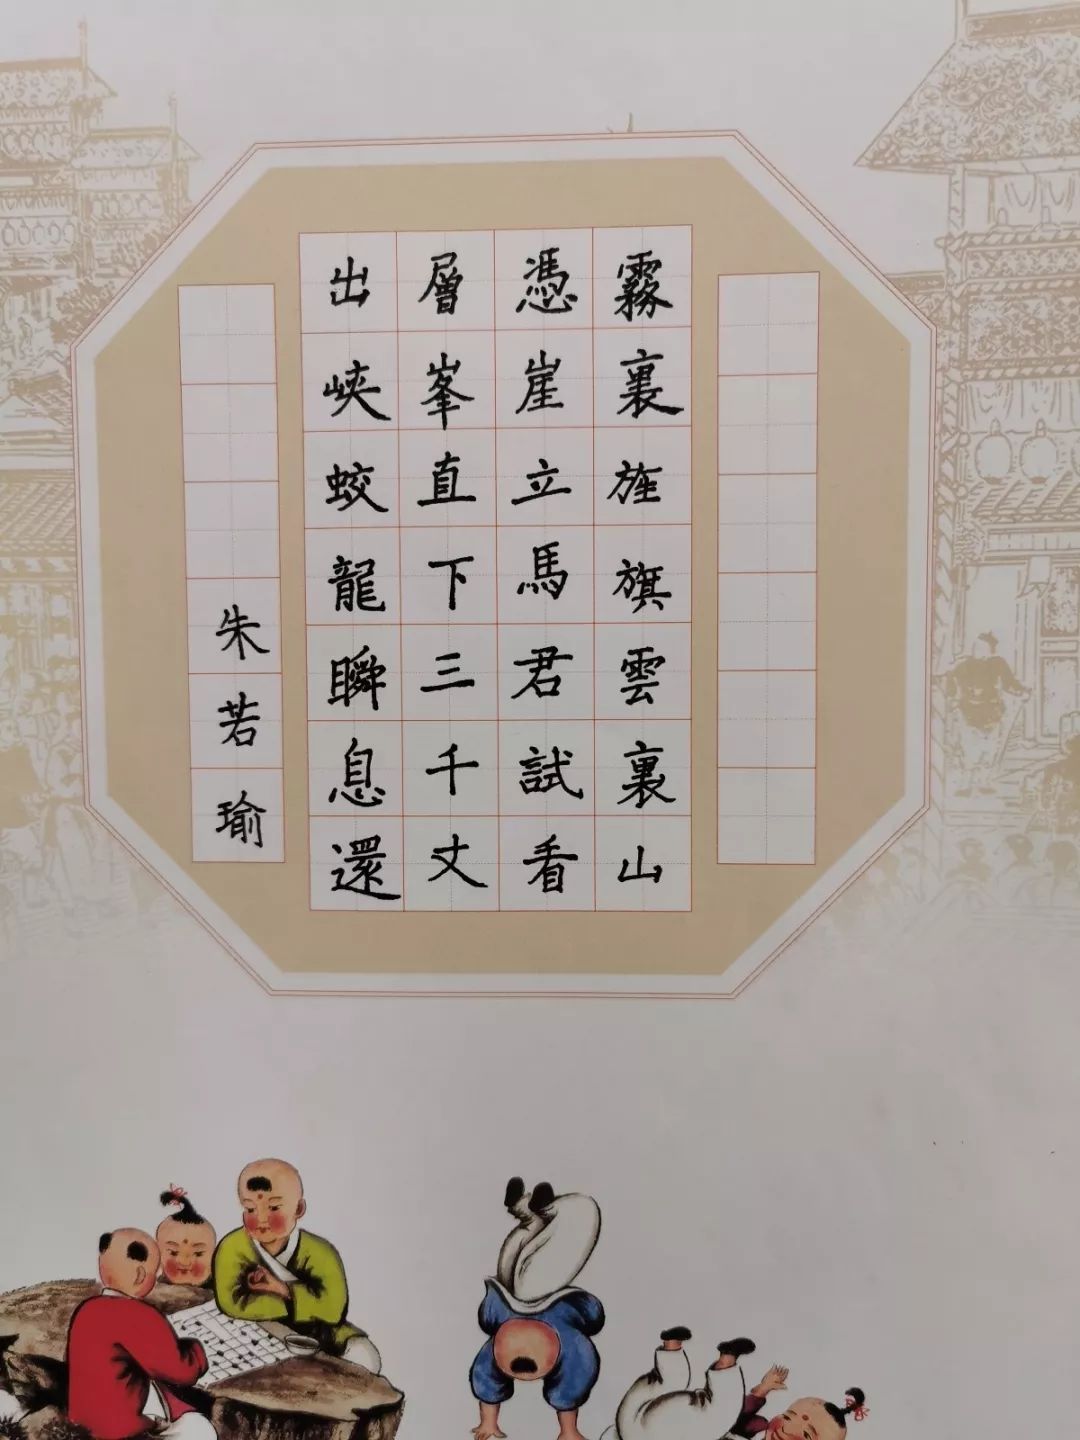 霧裏旌旗雲裏山
憑崖立馬君試看
層峯直下三千丈
出峽蛟龍瞬息還
朱若瑜